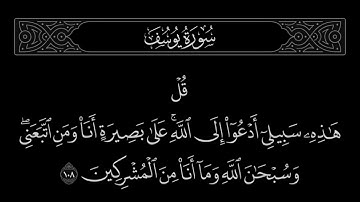 سُورَةُ يُوسُفَ
قُلۡ
هَٰذِهِۦ سَبِيلِيٓ أَدۡعُوٓاْ إِلَى ٱللَّهِۚ عَلَىٰ بَصِيرَةٍ أَنَا۠ وَمَنِ ٱتَّبَعَنِيۖ
وَسُبۡحَٰنَ ٱللَّهِ وَمَآ أَنَا۠ مِنَ ٱلۡمُشۡرِكِينَ ١٠٨